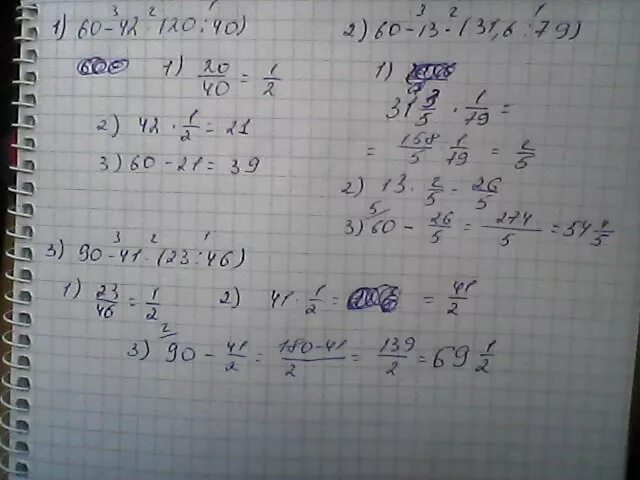 1) 60 - 42 · (20 : 40)
1) 20/40 = 1/2
2) 42 · 1/2 = 21
3) 60 - 21 = 39
2) 60 - 13 · (31,6 : 79)
1)
31 3/5 · 1/79 =
= 158/5 · 1/79 = 2/5
2) 13 · 2/5 = 26/5
3) 60 - 26/5 = 274/5 = 54 4/5
3) 90 - 41 · (23 : 46)
1) 23/46 = 1/2
2) 41 · 1/2 = = 41/2
3) 90 - 41/2 = 180-41/2 = 139/2 = 69 1/2